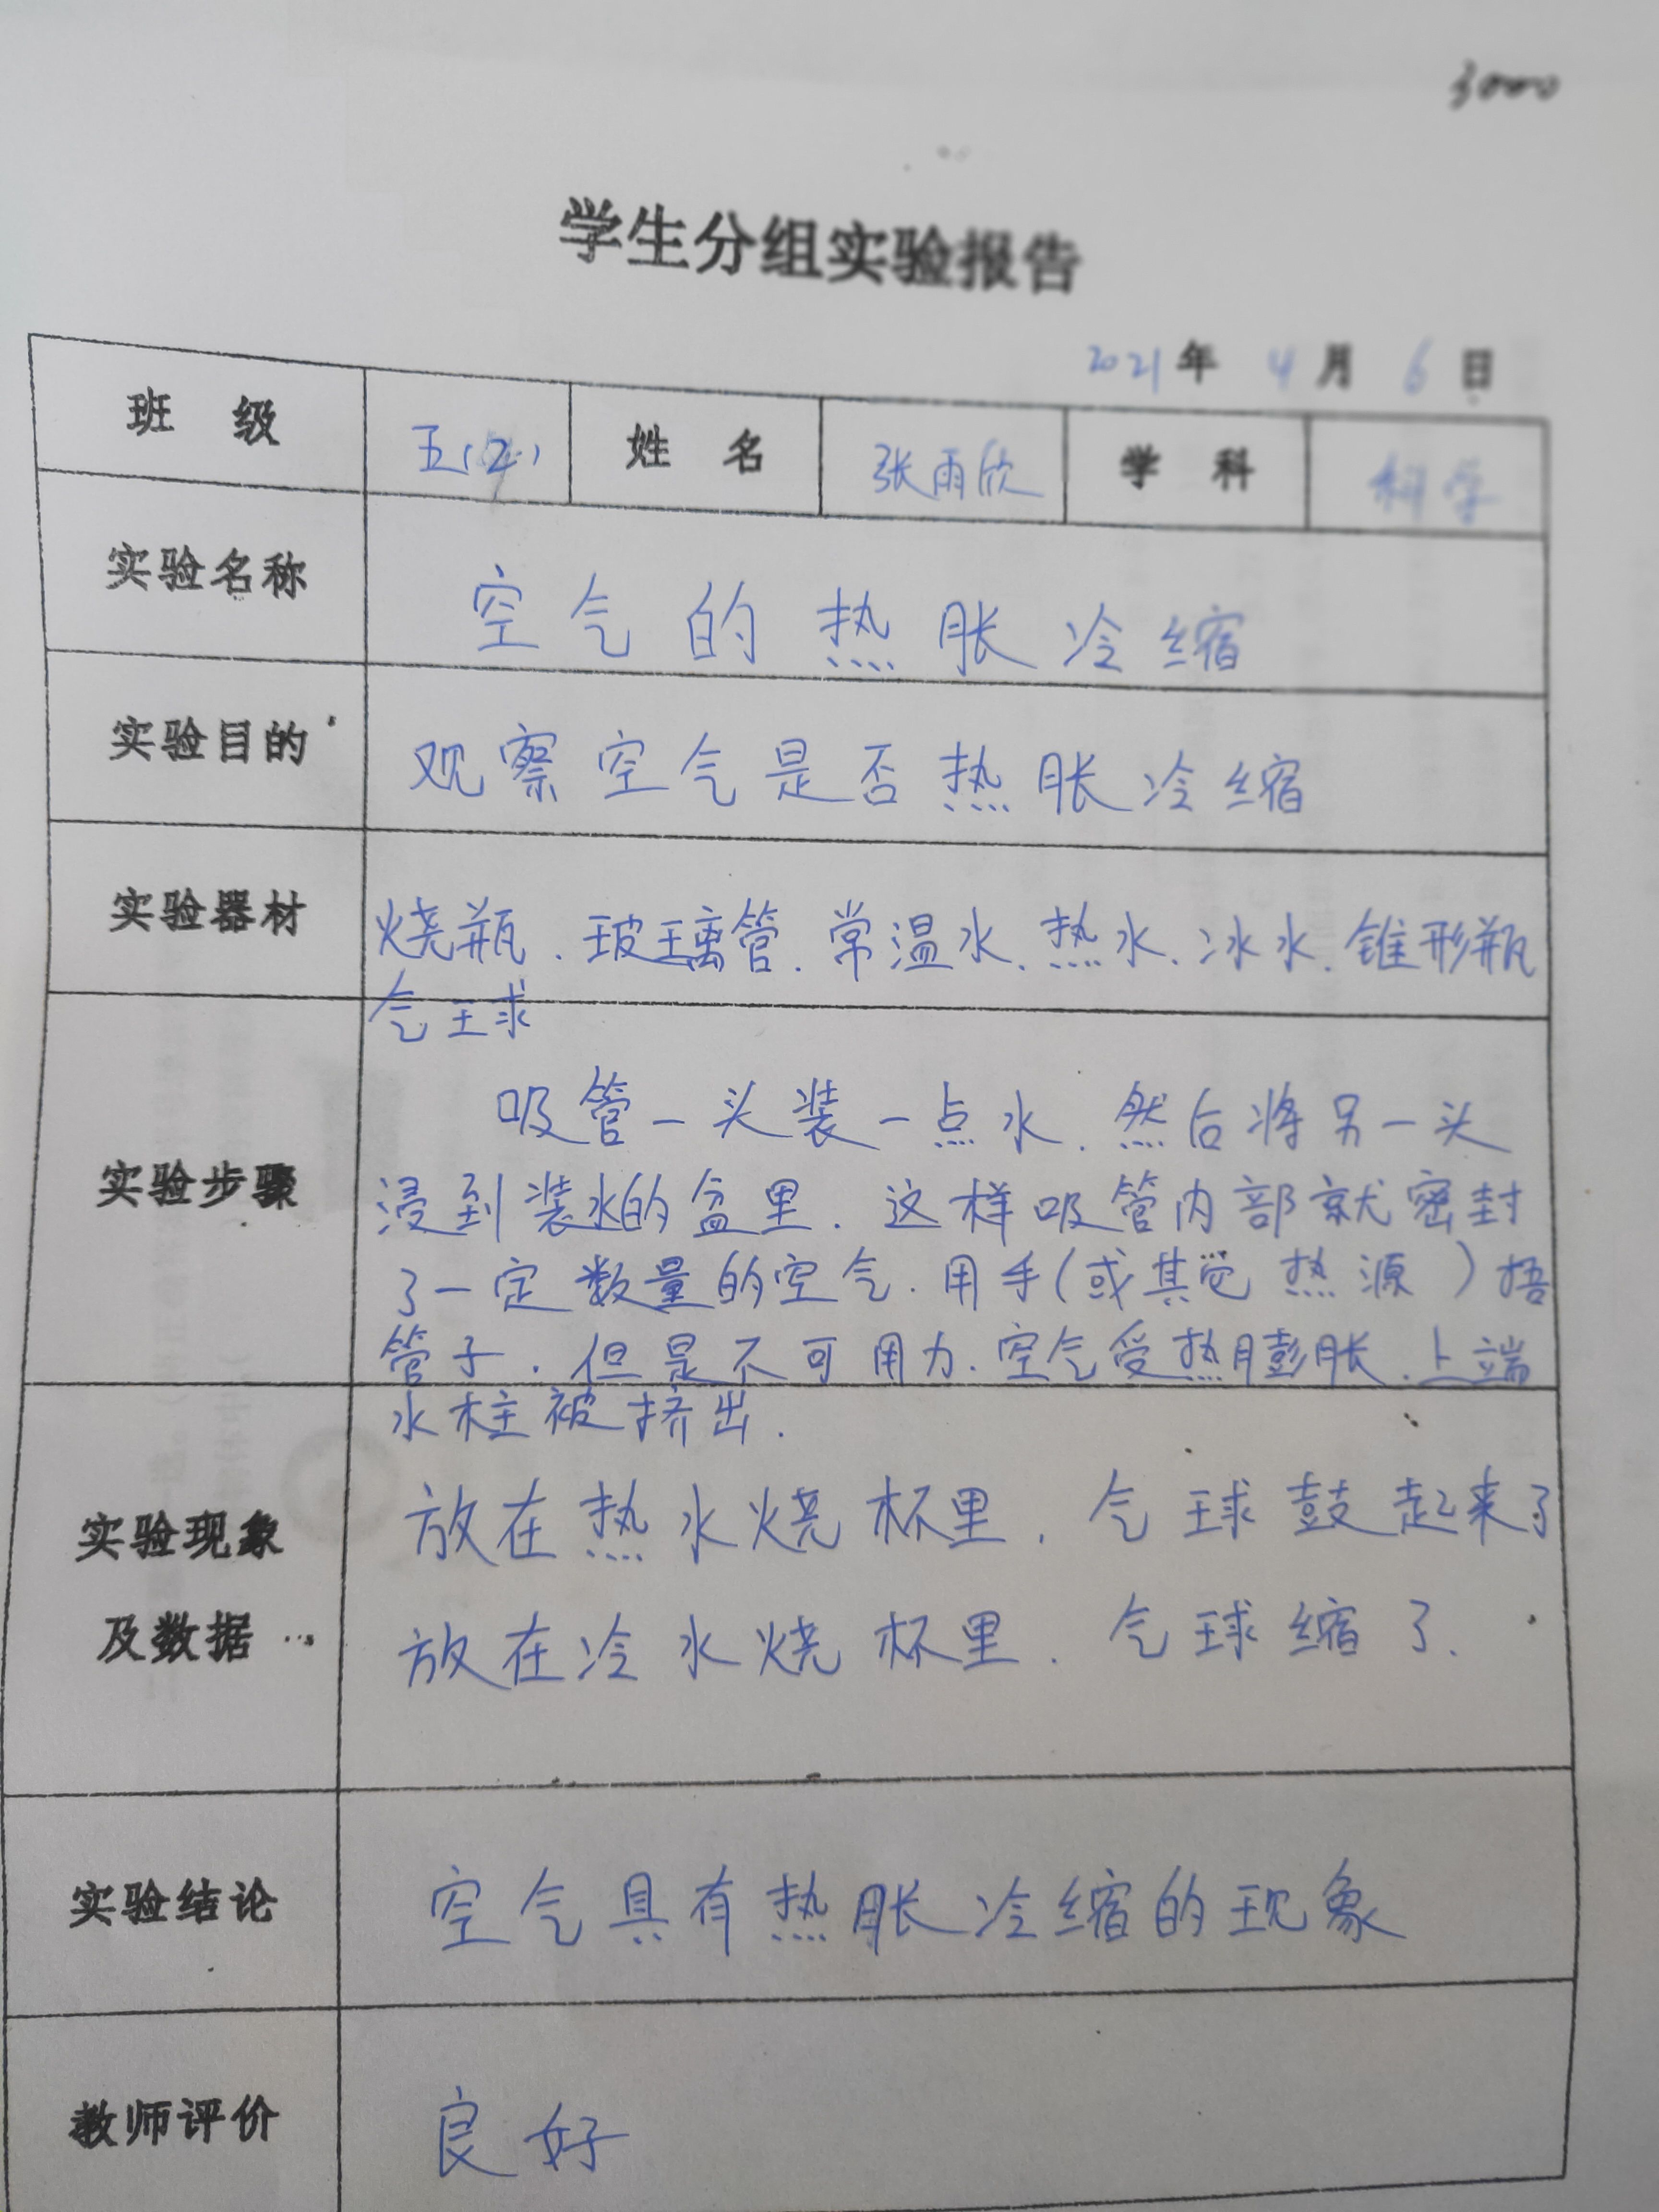 3000
学生分组实验报告
2021年 4月 6日
班 级 五(2) 姓 名 张雨欣 学 科 科学
实验名称 空气的热胀冷缩
实验目的 观察空气是否热胀冷缩
实验器材 烧瓶、玻璃管、常温水、热水、冰水、锥形瓶
气球
吸管一头装一点水、然后将另一头
实验步骤 浸到装水的盆里、这样吸管内部就密封
了一定数量的空气、用手(或其它热源)捂
管子、但是不可用力、空气受热膨胀、上端
水柱被挤出.
实验现象 放在热水烧杯里、气球鼓起来了
及数据 放在冷水烧杯里、气球缩了.
实验结论 空气具有热胀冷缩的现象
教师评价 良好